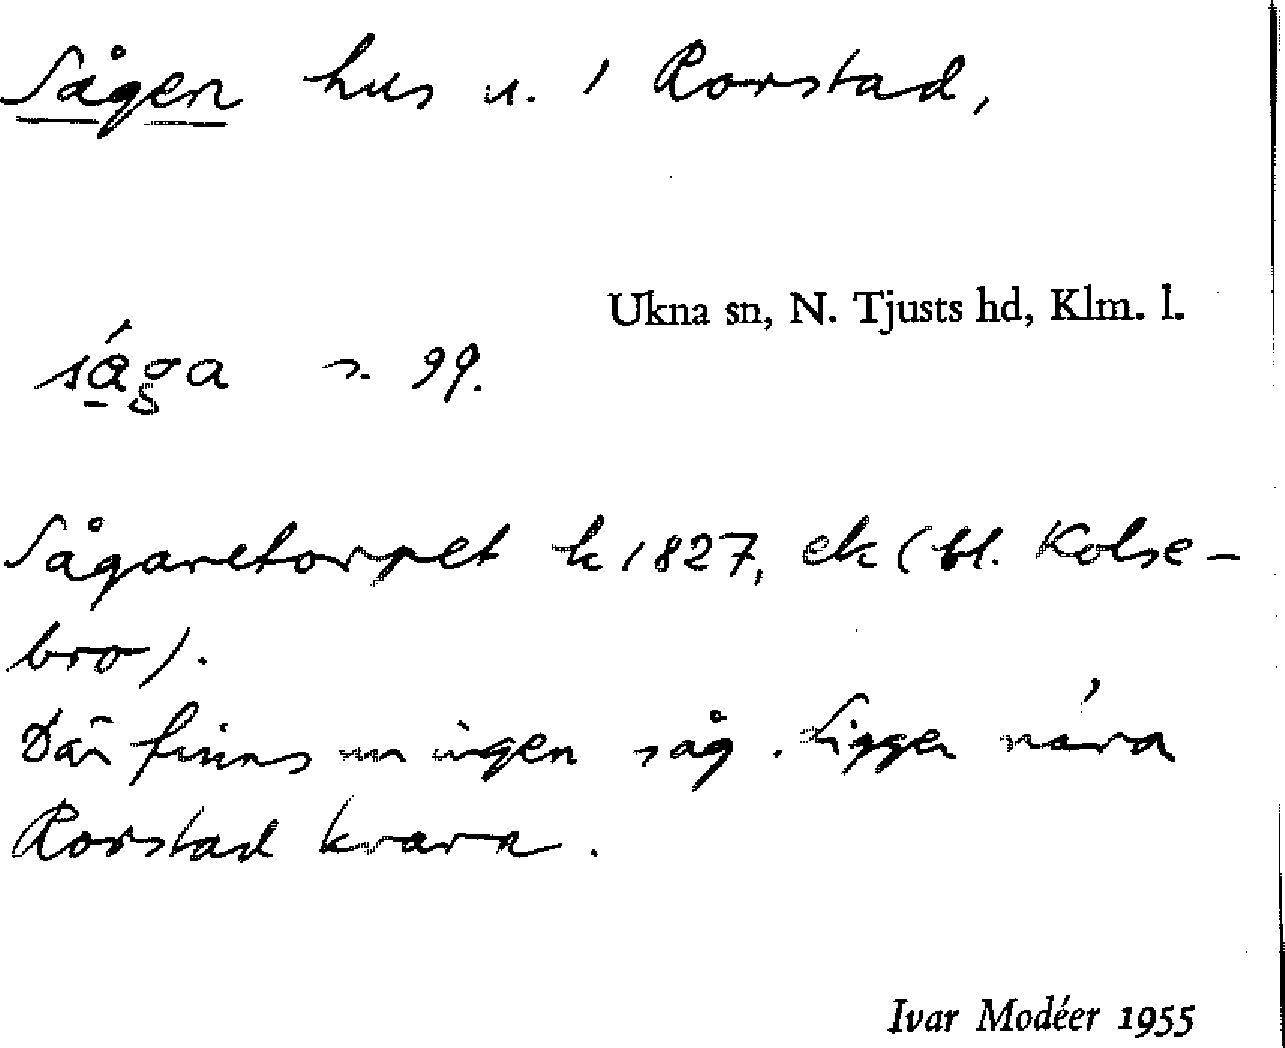 Sågen hus u. 1 Rorstad,
Ukna sn, N. Tjusts hd, Klm. l.
såga s. 99.
Sågaretorpet k 1827, ek (bl. Kolse-
bro).
Där finns nu ingen såg. Ligger nära
Rorstad kvarn.
Ivar Modéer 1955